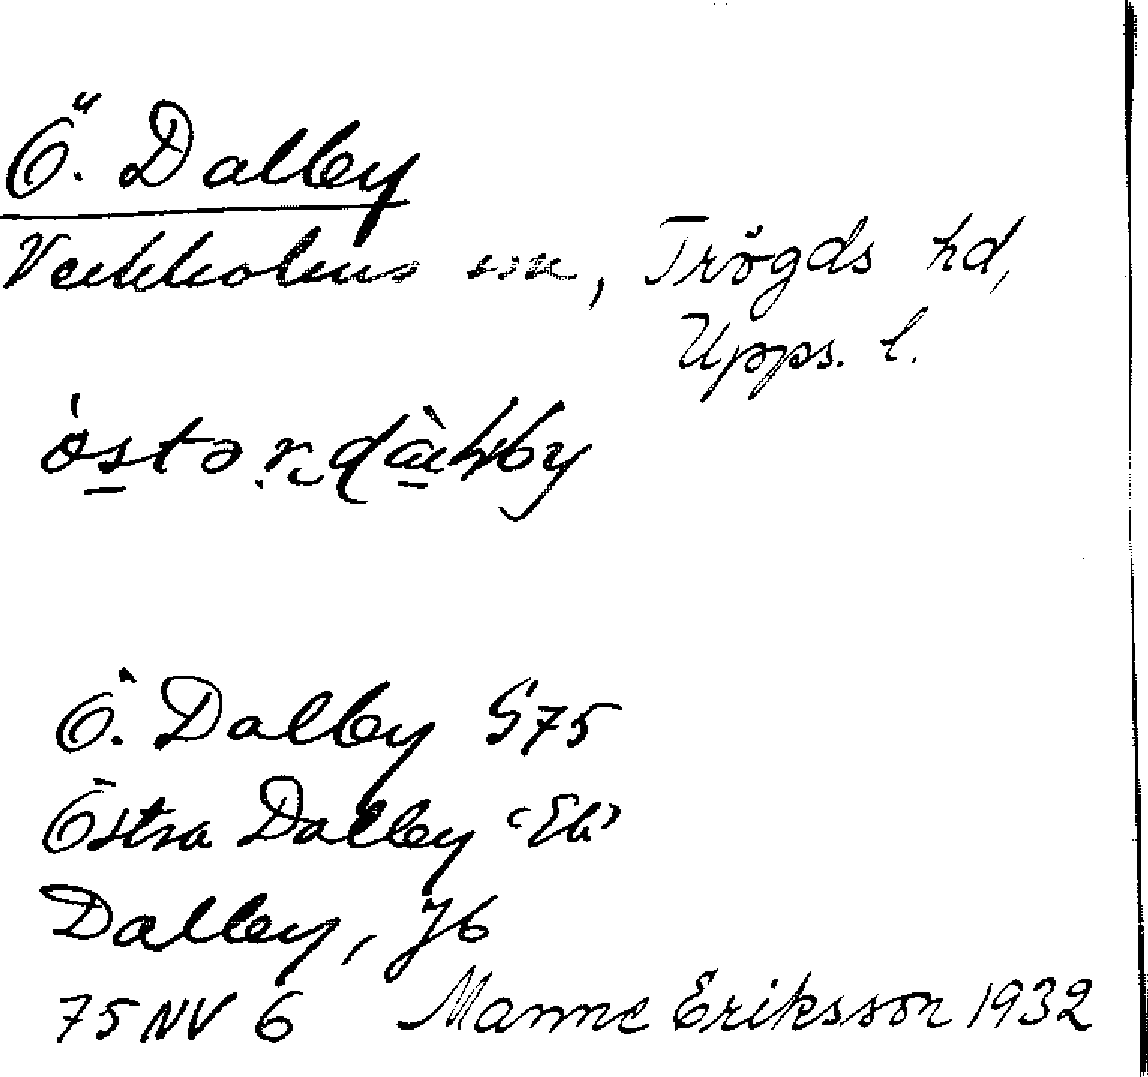 Ö. Dalby
Veckholms sn, Trögds hd,
Upps. l.
Ö. Dalby S75
Östra Dalby
Dalby, Jb
75 NV 6 Manne Eriksson 1932